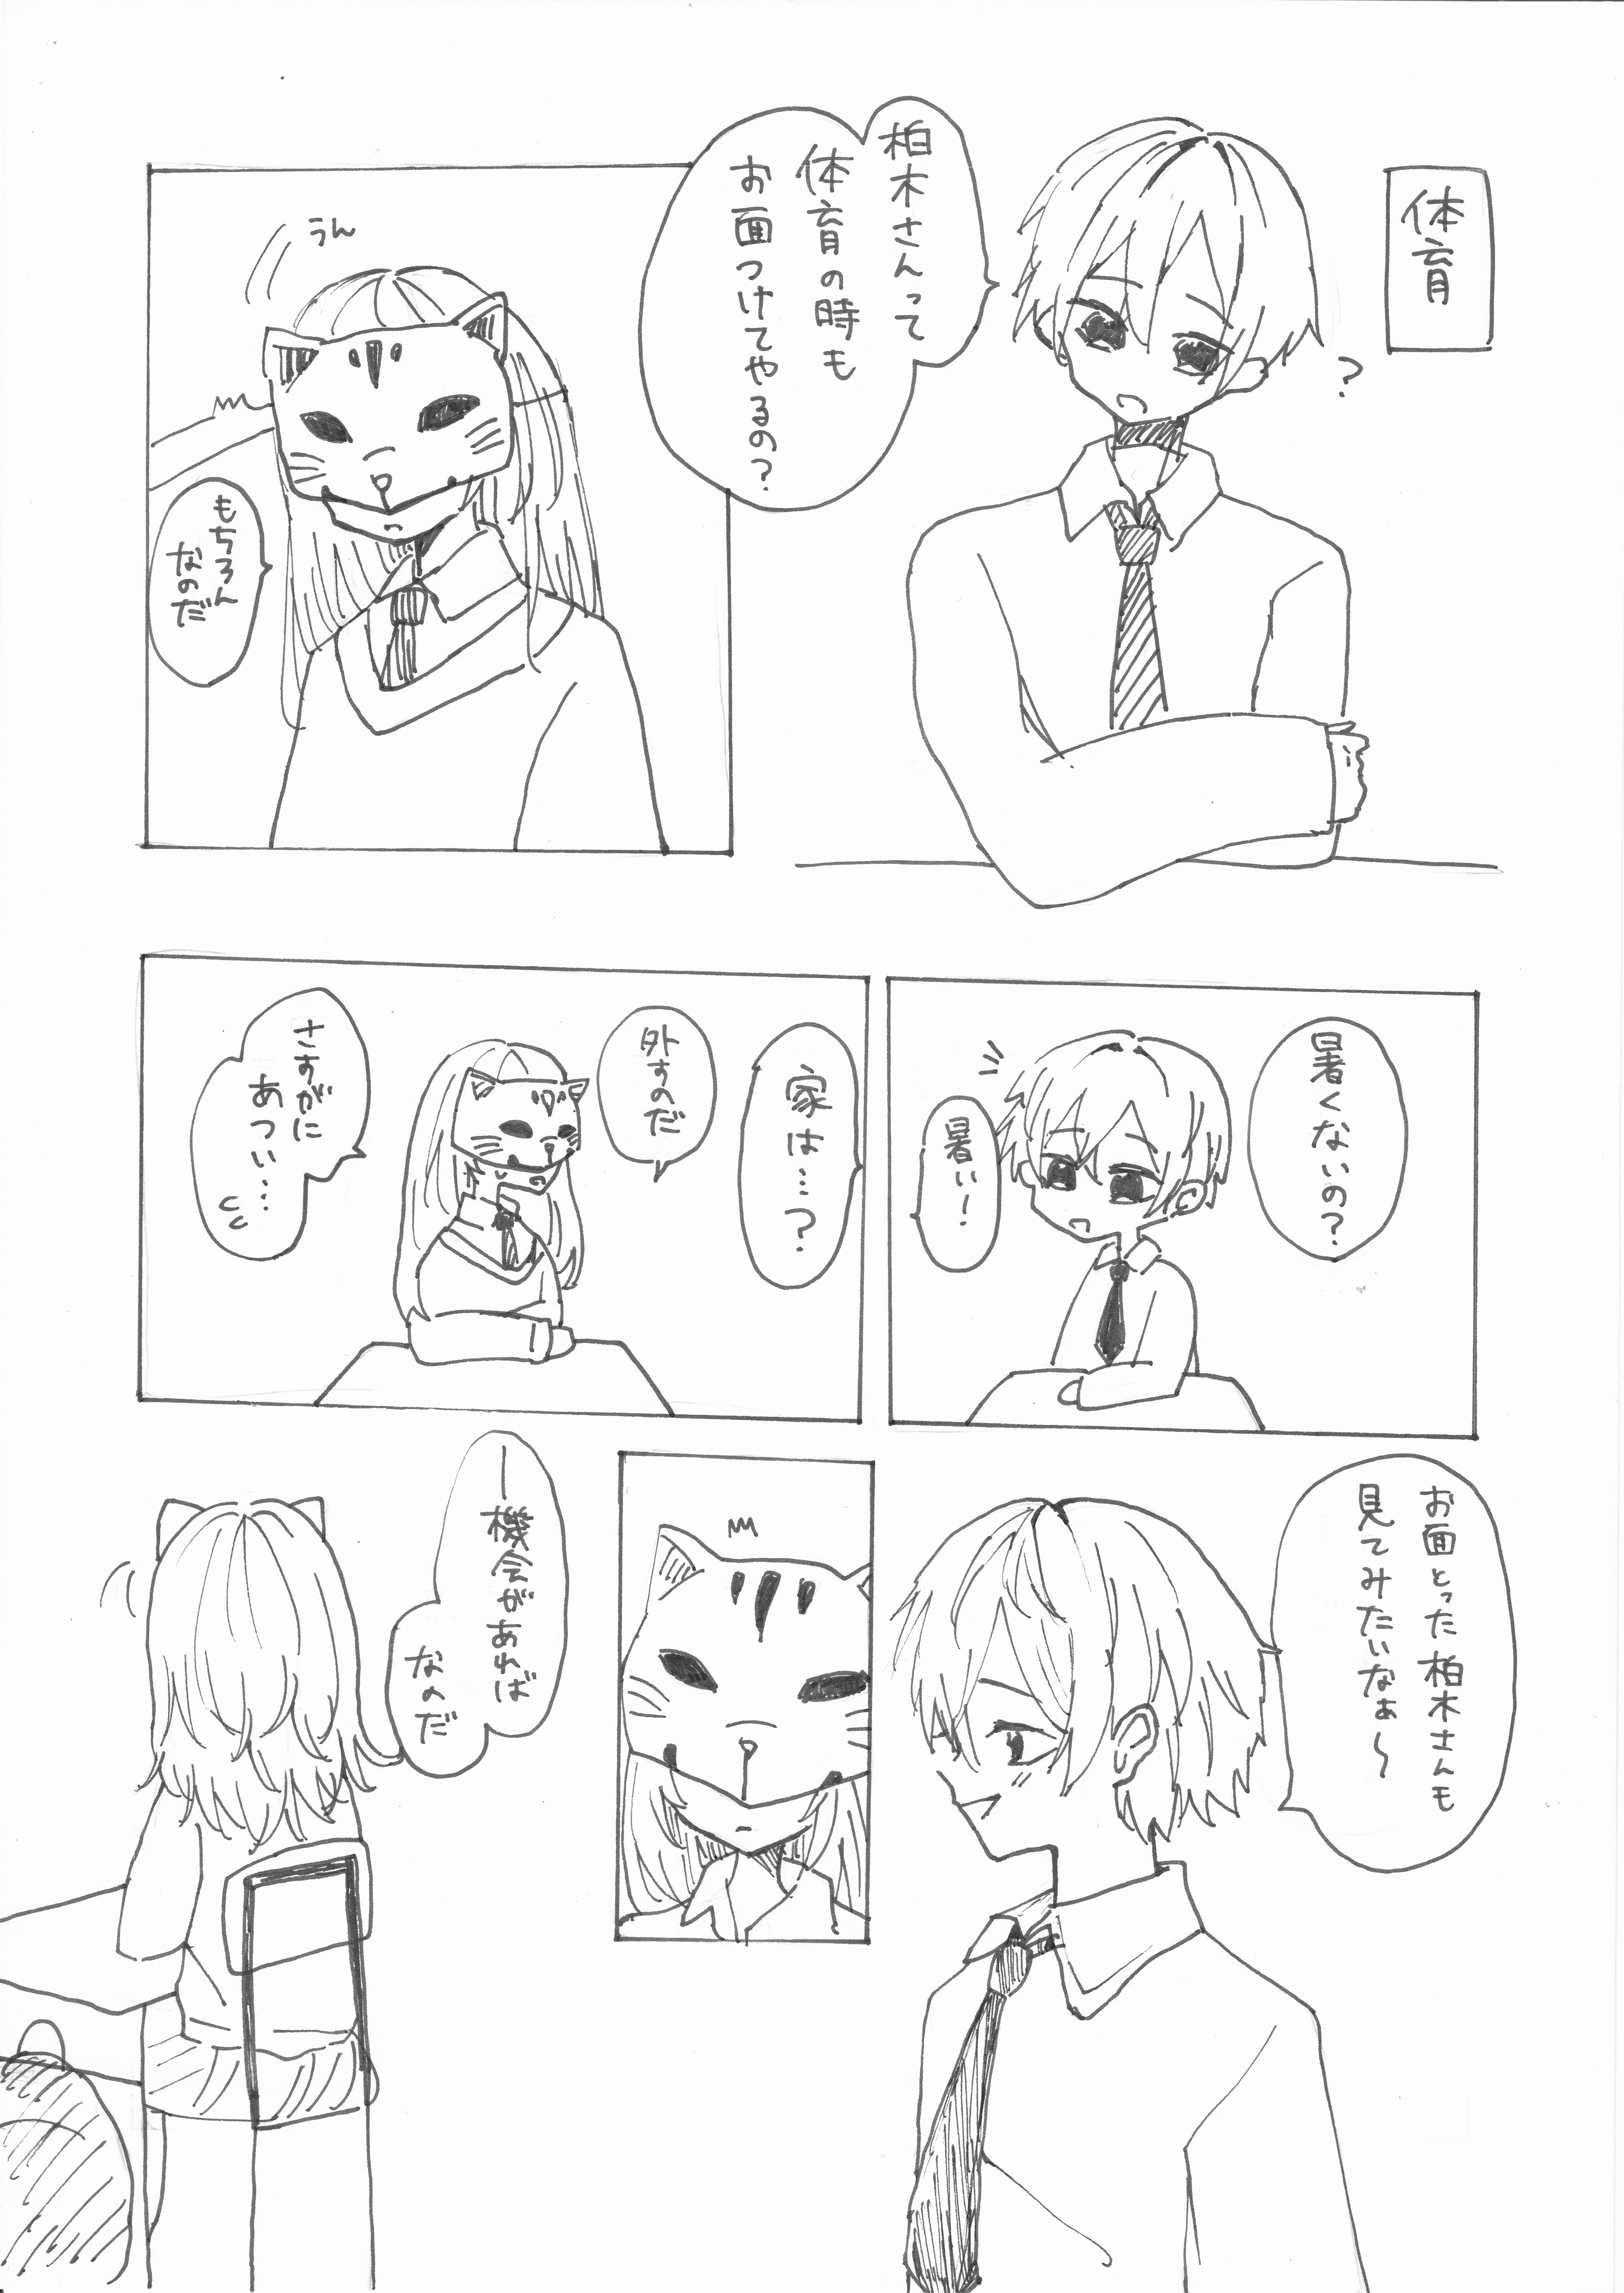 体育
柏木さんって
体育の時も
お面つけてやるの?
?
うん
もちろん
なのだ
暑くないの?
暑い!
家は…?
外すのだ
さすがに
あつい…
お面とった柏木さんも
見てみたいなぁ〜
ー機会があれば
なのだ